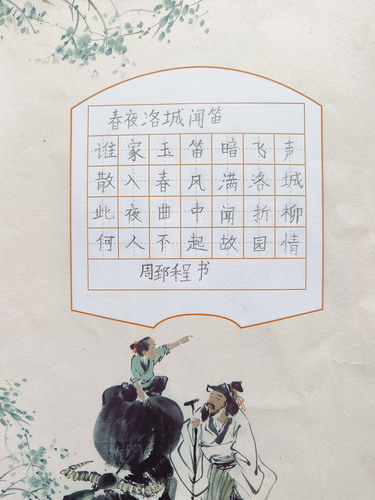 春夜洛城闻笛
谁家玉笛暗飞声
散入春风满洛城
此夜曲中闻折柳
何人不起故园情
周郅程书